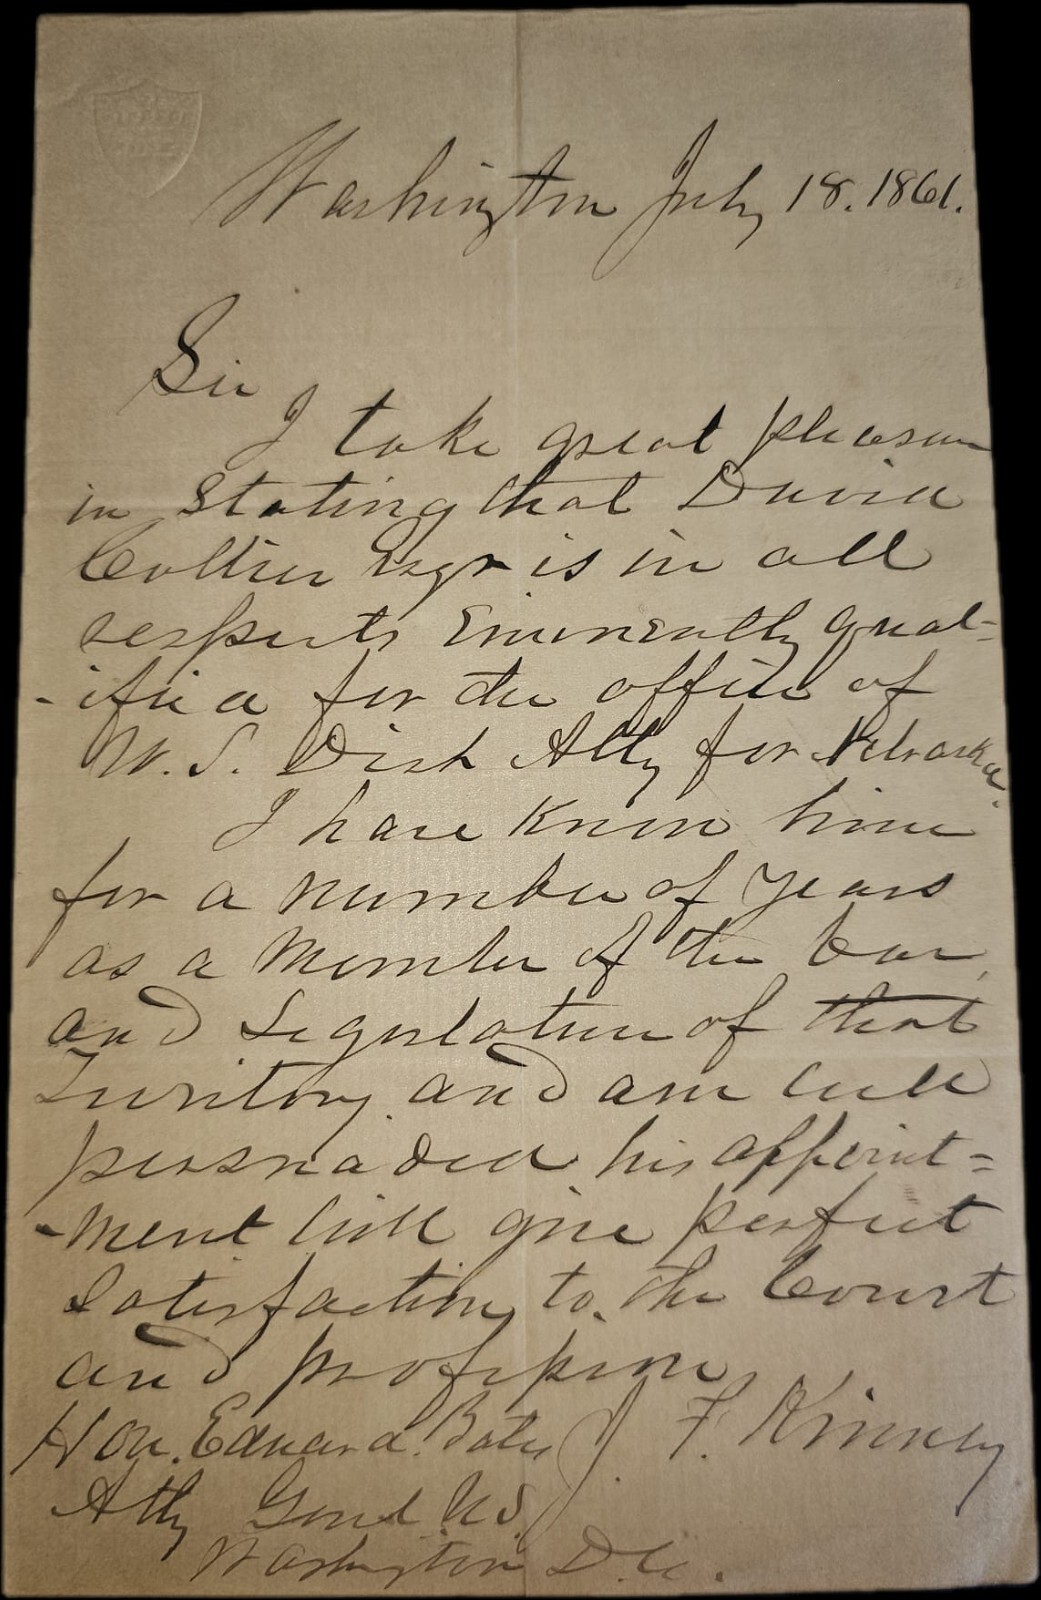 Washington July 18. 1861.
Sir
I take great pleasure
in stating that David
Collier Esqr is in all
respects Eminently qual=
-ified for the office of
U. S. Dist Atty for Nebraska.
I have known him
for a number of years
as a member of the bar,
and Legislature of that
Territory and am well
persuaded his appoint=
-ment will give perfect
satisfaction to the Court
and profession
J. F. Kinney
Hon. Edward Bates
Atty Genl U S.
Washington D.C.